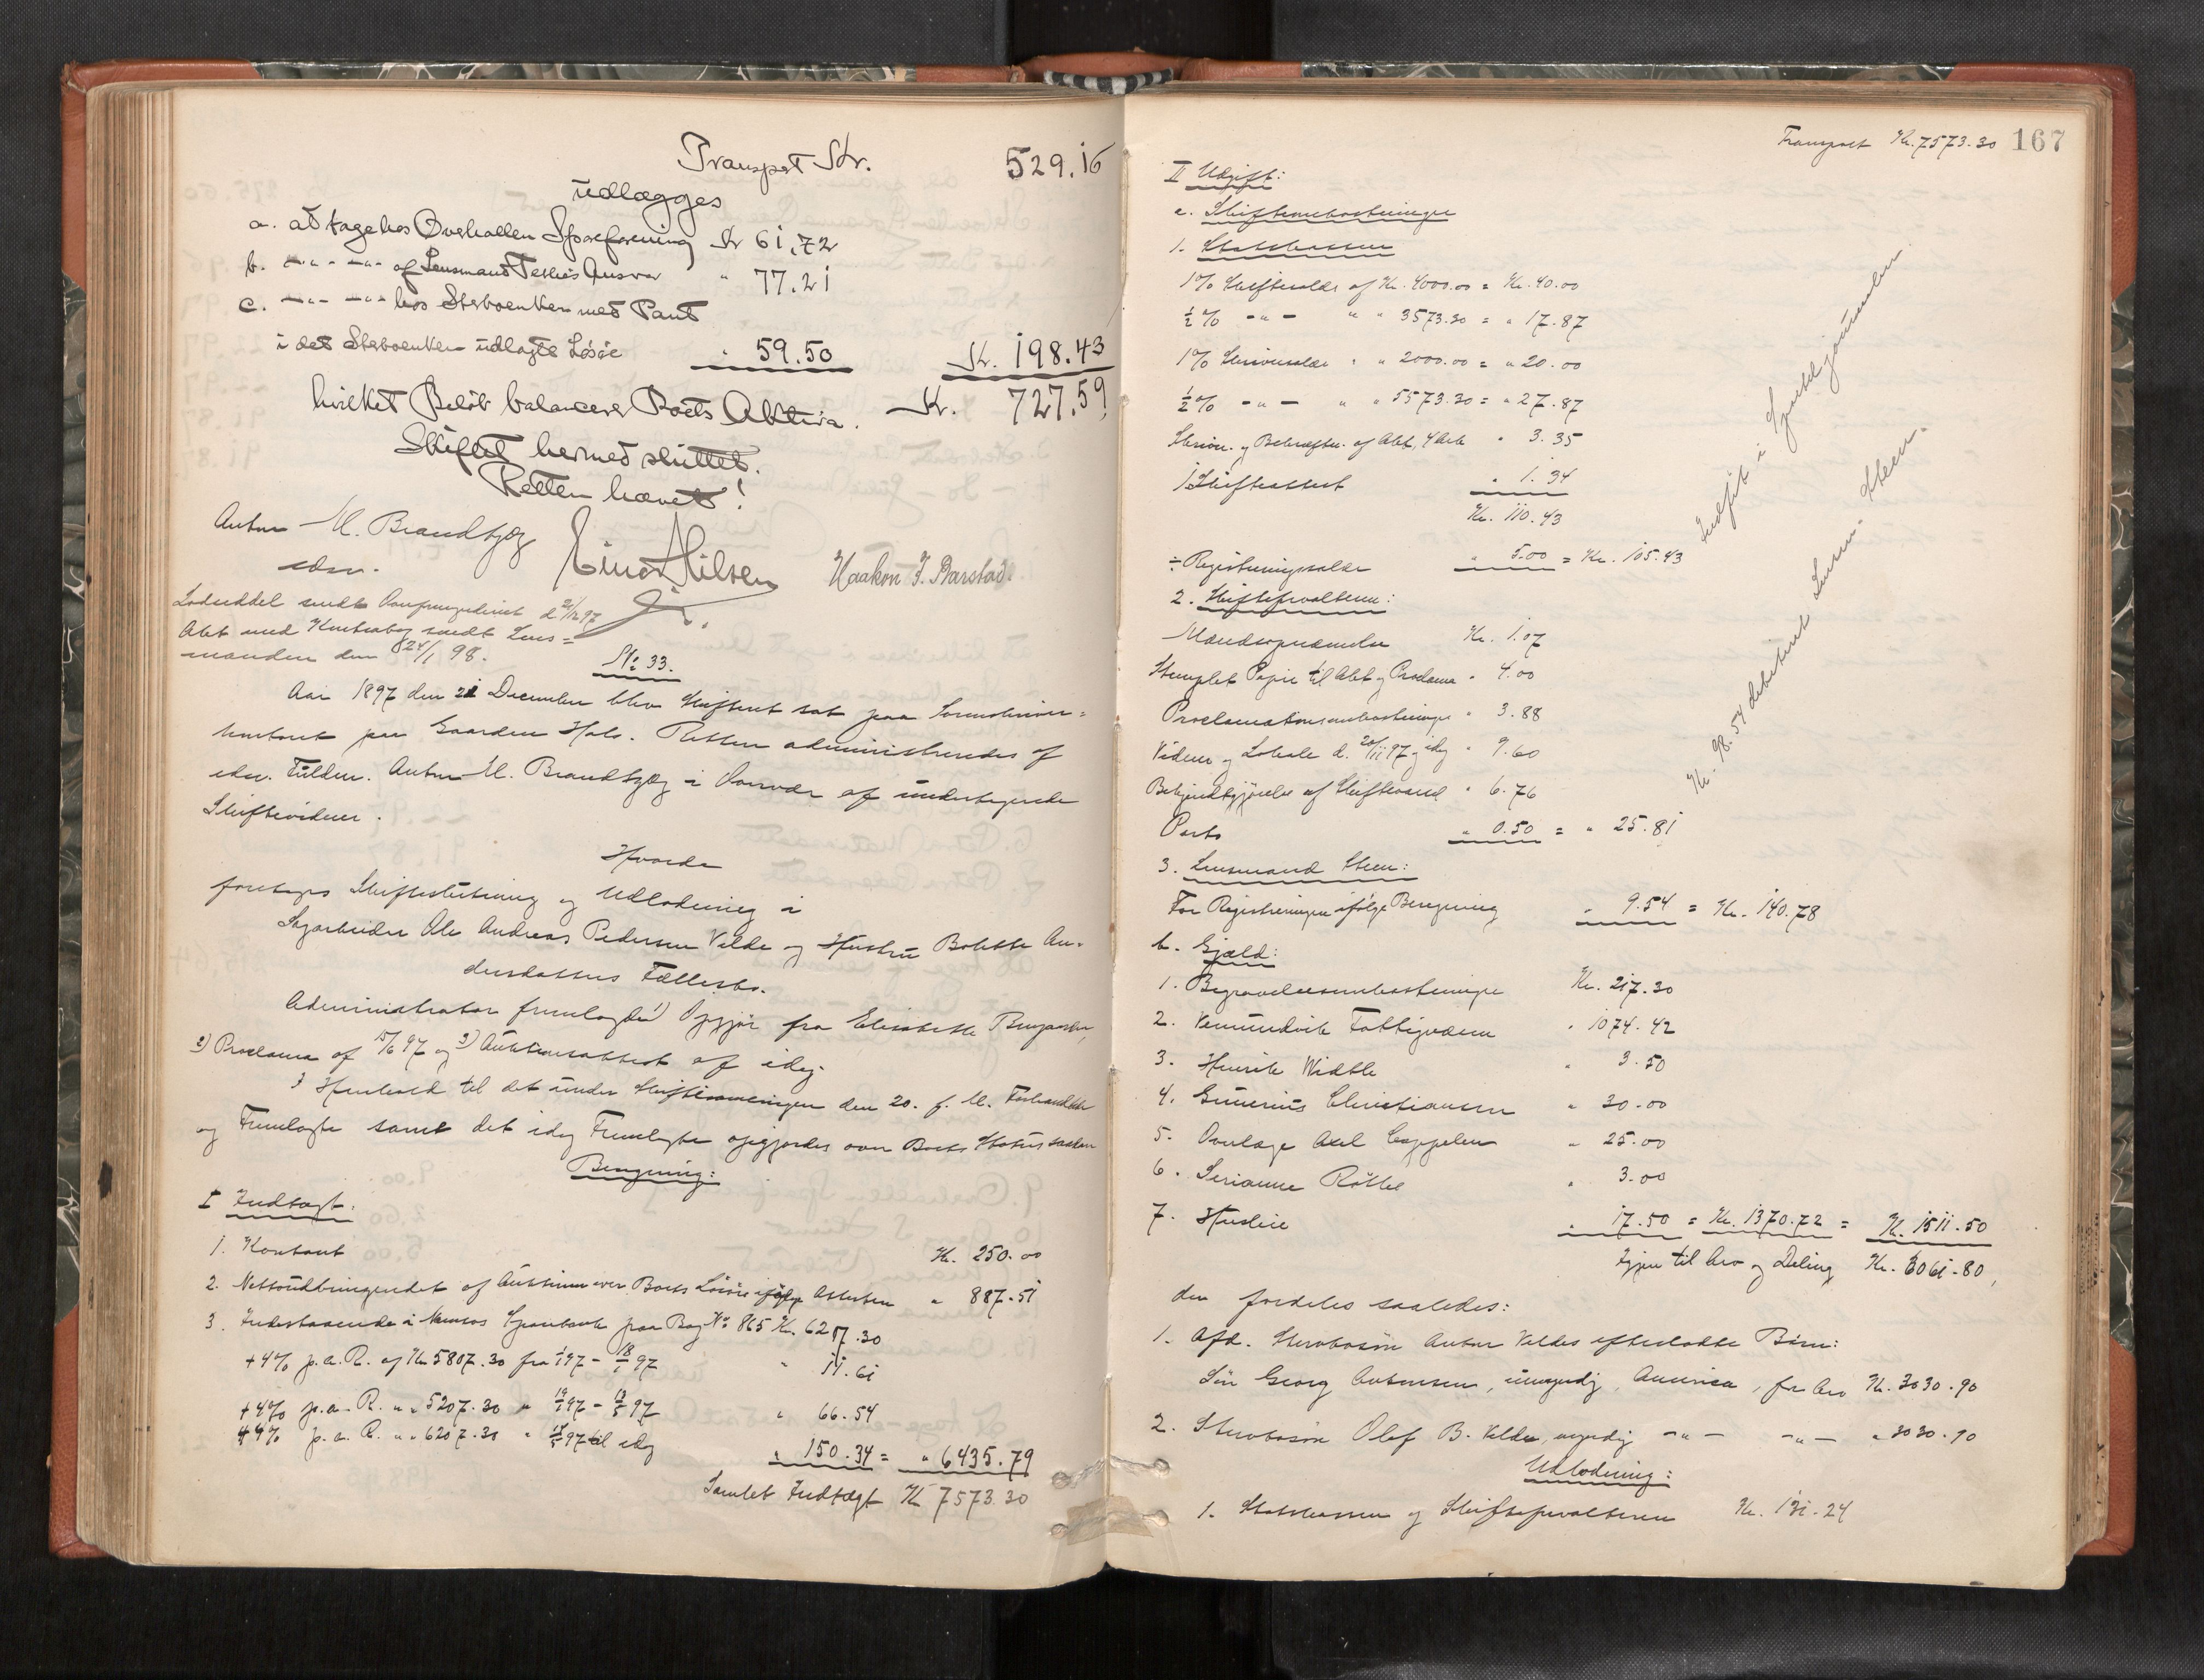 Transport Kr. 529.16
udlægges
a. at tage hos Overhallen Spareforening Kr 61.72
b. —"— —"— af Lensmand Tethies Ansvar " 77.21
c. —"— —"— hos Sterboenken med Pant
i det Sterboenken udlagte Løsøre " 59.50 Kr. 198.43
hvilket Beløb balancerer Boets Aktiva. Kr. 727.59
Skiftet hermed sluttet.
Retten hævet!
Anton M. Brandtzæg
edsv.
Einar Nilsen
Haakon J. Barstad.
Lodseddel sendt 21/12 97
Akt med Kvitterbog sendt Lens=
manden den 24/1 98.
No 33.
Aar 1897 den 21 December blev Skifteret sat paa Sorenskriver=
kontoret paa Gaarden Hals. Retten administreredes af
edsv. Fuldm. Anton M. Brandtzæg i Overvær af undertegnede
Skiftevidner.
Hvorda
foretoges Skifteslutning og Udlodning i
Sagarbeider Ole Andreas Pedersen Velde og Hustru Bolette An=
dersdatters Fællesbo.
Administrator fremlagde 1) Opgjør fra Elisabeth
2) Proclama af 15/6 97 og 3) Auktionsattest af idag.
I Henhold til det under Skiftesamlingen den 20. f. M. Forhandlede
og Fremlagte samt det idag Fremlagte opgjordes over Boets Status saadan
Beregning:
I Indtægt.
1. Kontant Kr. 250.00
2. Nettoudbringendet af Auktionen over Boets Løsøre ifølge Attesten " 887.51
3. Indestaaende i Namsos Sparebank paa Bog No 865 Kr. 6207.30
+ 4% p.a. R. af Kr 5807.30 fra 1/1 97 - 18/1 97 " 11.61
+ 4% p.a. R. " " 5207.30 " 19/1 97 - 13/5 97 " 66.54
+ 4% p.a. R. " " 6207.30 " 14/5 97 til idag " 150.34 = " 6435.79
Samlet Indtægt Kr 7573.30
Transport Kr. 7573.30 167
II Udgift:
a. Skifteomkostninger
1. Statskassen
1% Skiftesalær af Kr. 4000.00 = Kr. 40.00
½% —"— " " 3573.30 = " 17.87
1% Skriversalær " " 2000.00 = " 20.00
½% —"— " " 5573.30 = " 27.87
Skriv. og Bekræftn. af Akt, 4 Ark " 3.35
1 Skifteattest " 1.34
Kr. 110.43
÷ Registreringssalær " 5.00 = Kr. 105.43
2. Skifteforvalteren:
Mændsopnævnelse Kr. 1.07
Stemplet Papir til Akt og Proclama " 4.00
Proclamationsomkostninger " 3.88
Vidner og Lokale d. 20/11 97 og idag " 9.60
Bekjendtgjørelse af Skiftevarsel " 6.76
Porto " 0.50 = " 25.81
3. Lensmand Steen:
For Registreringen ifølge Beregning " 9.54 = Kr. 140.78
b. Gjæld:
1. Begravelsesomkostninger Kr. 217.30
2. Vemundvik Fattigvæsen " 1074.42
3. Henrik Widtle " 3.50
4. Gunerius Christiansen " 30.00
5. Overlæge Axel Cappelen " 25.00
6. Serianne Røttel " 3.00
7. Husleie " 17.50 = Kr. 1370.72 = Kr. 1511.50
Igjen til Arv og Deling Kr. 6061.80,
der fordeles saaledes:
1. Afd. Sterbosøn Anton Veldes efterladte Børn:
Søn Georg Antonsen, umyndig, America, for Arv Kr. 3030.90
2. Sterbosøn Olaf B. Velde, myndig —"— —"— " 3030.90
Udlodning:
1. Statskassen og Skifteforvalteren Kr. 131.24
Indført i Sporteljournalen
Kr. 98.54 debiteret Lensm. Steen.